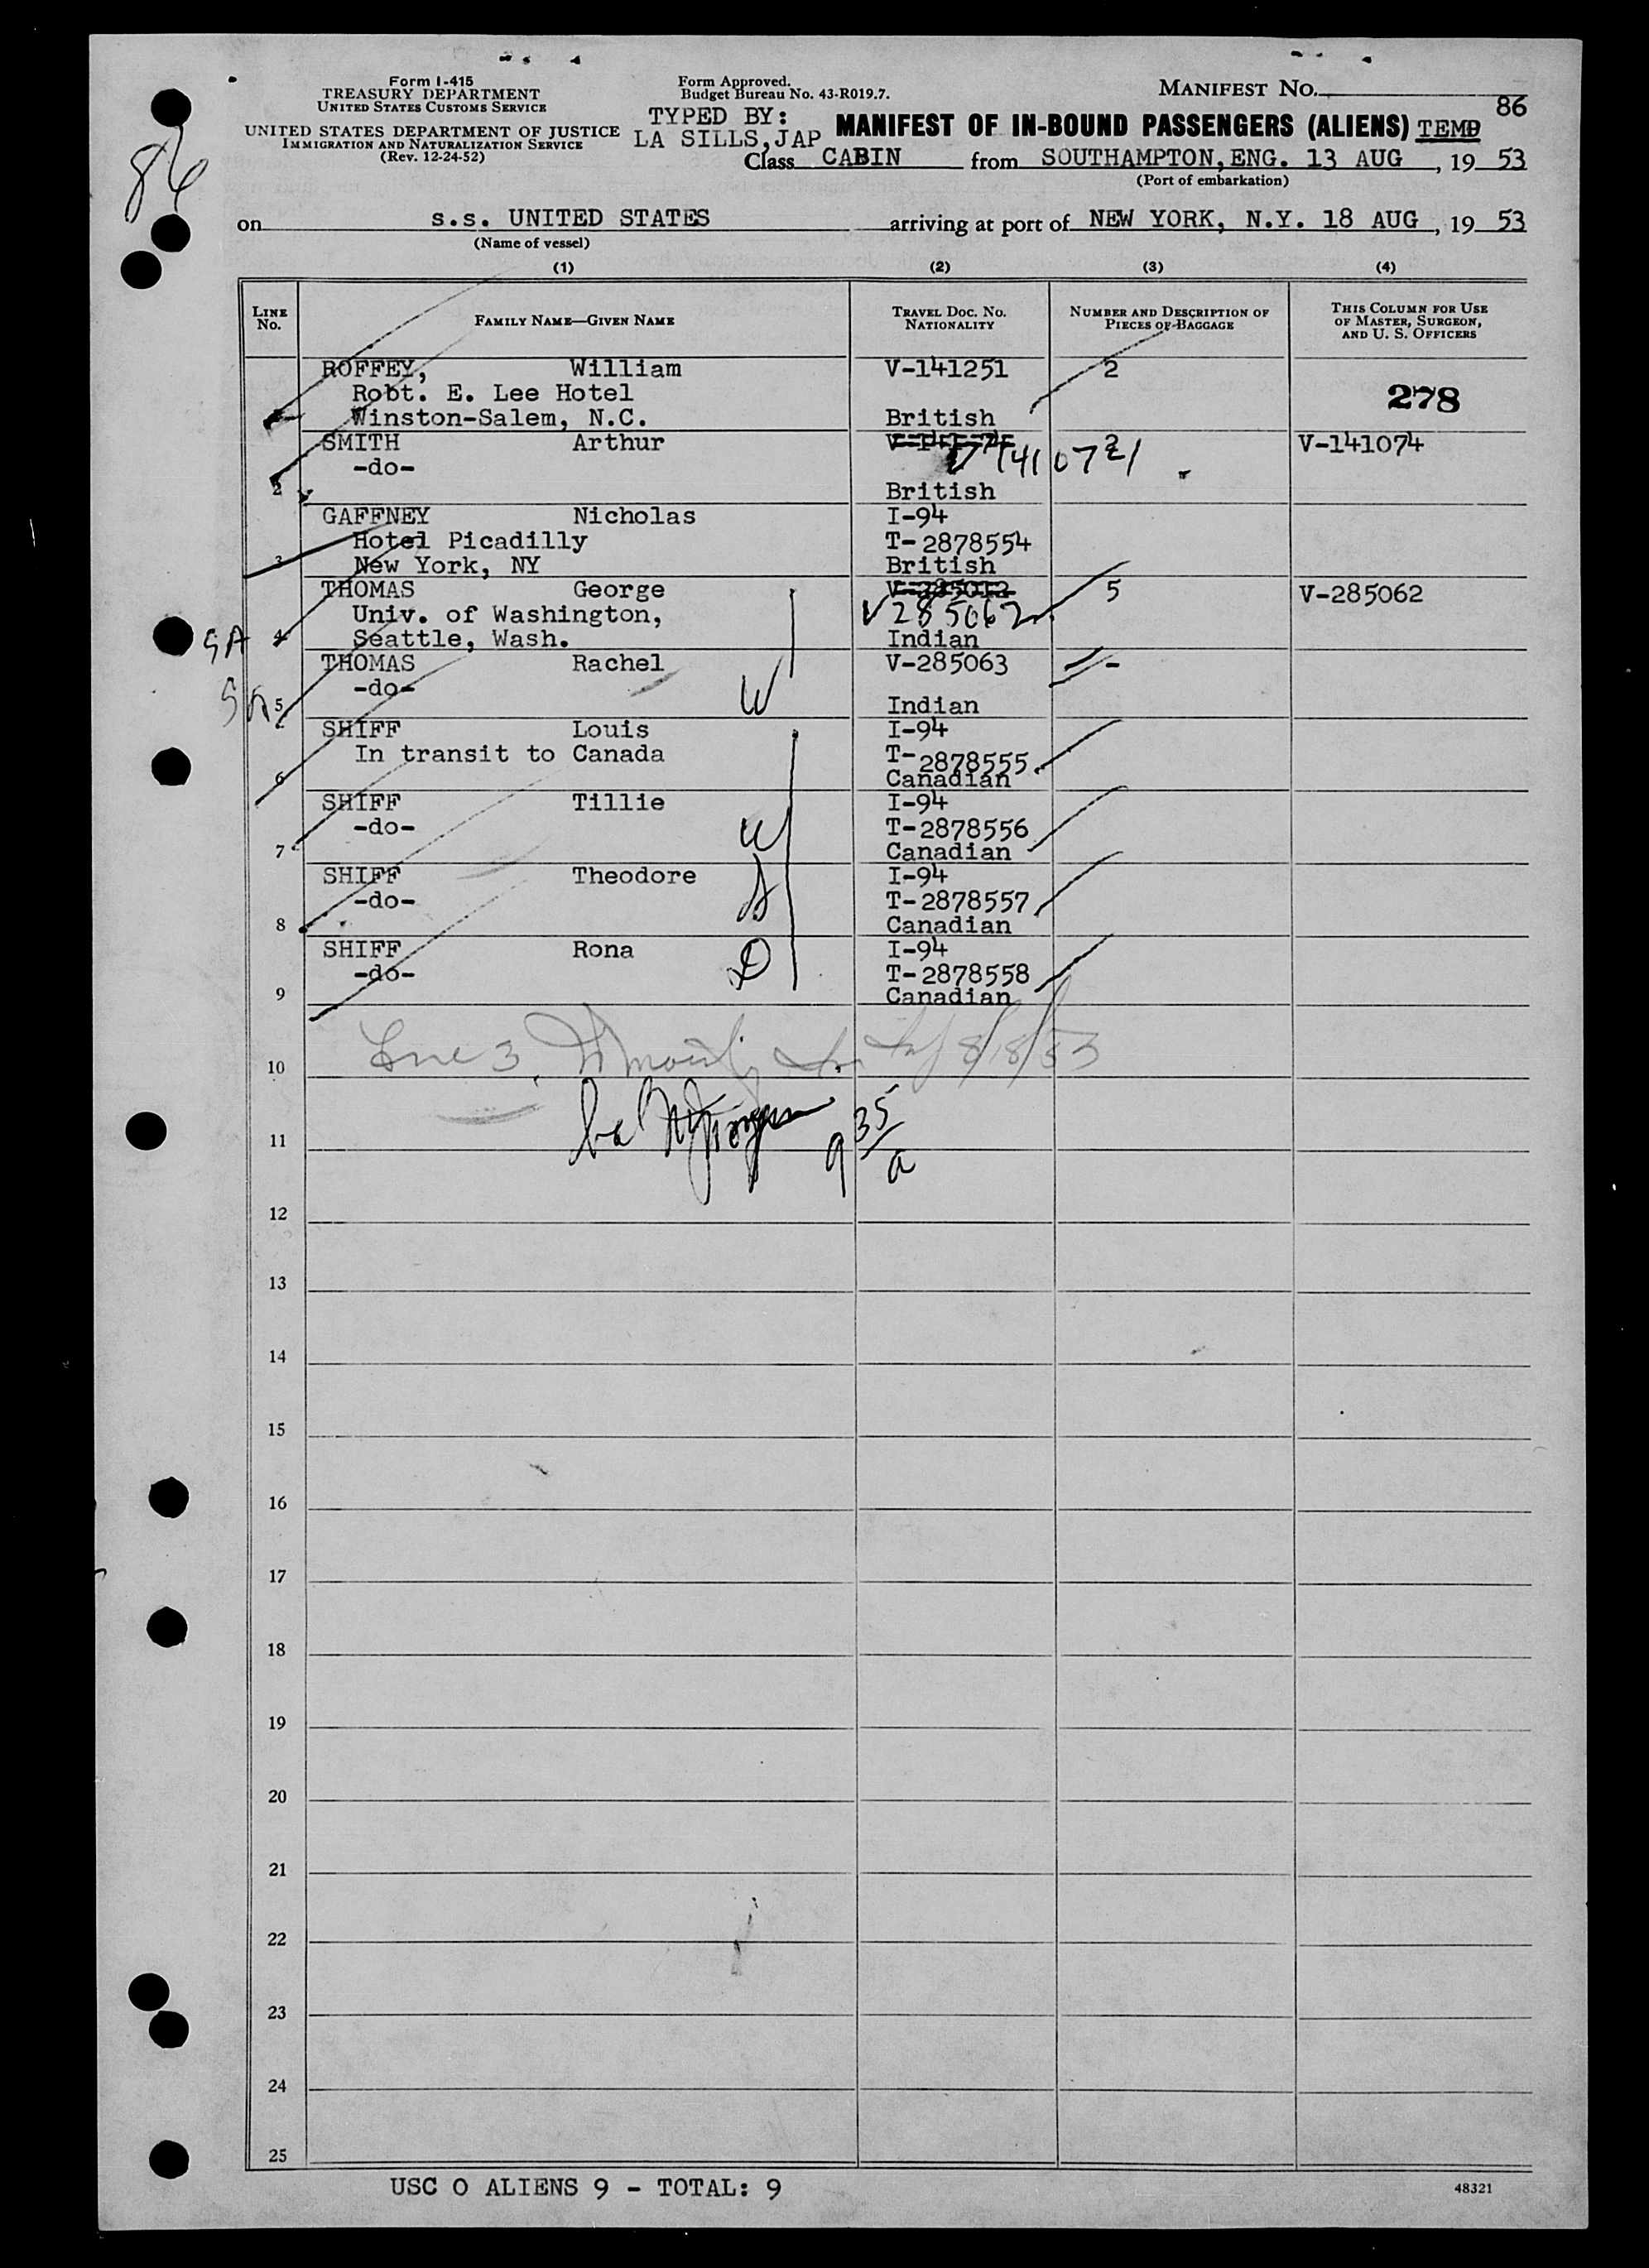 Form I-415
TREASURY DEPARTMENT
UNITED STATES CUSTOMS SERVICE
UNITED STATES DEPARTMENT OF JUSTICE
IMMIGRATION AND NATURALIZATION SERVICE
(Rev. 12-24-52)
Form Approved.
Budget Bureau No. 43-R019.7.
TYPED BY:
LA SILLS,JAP
MANIFEST NO.
86
MANIFEST OF IN-BOUND PASSENGERS (ALIENS) TEMP
86
Class CABIN from SOUTHAMPTON, ENG. 13 AUG , 19 53
(Port of embarkation)
on s.s. UNITED STATES arriving at port of NEW YORK, N.Y. 18 AUG , 19 53
(Name of vessel)
(1) (2) (3) (4)
LINE No. FAMILY NAME—GIVEN NAME TRAVEL DOC. NO. NATIONALITY NUMBER AND DESCRIPTION OF PIECES OF BAGGAGE THIS COLUMN FOR USE OF MASTER, SURGEON, AND U. S. OFFICERS
ROFFEY, William V-141251 2
Robt. E. Lee Hotel 278
Winston-Salem, N.C. British
SMITH Arthur 2 V-141074
-do-
2 British
GAFFNEY Nicholas I-94
Hotel Picadilly T-2878554
3 New York, NY British
THOMAS George 5 V-285062
Univ. of Washington, V285062
SA 4 Seattle, Wash. Indian
THOMAS Rachel V-285063 -
-do- W
5 Indian
SHIFF Louis I-94
In transit to Canada T-2878555
6 Canadian
SHIFF Tillie I-94
-do- W T-2878556
7 Canadian
SHIFF Theodore I-94
-do- T-2878557
8 Canadian
SHIFF Rona I-94
-do- D T-2878558
9 Canadian
Line 3 8/18/53
10
9 35/a
11
12
13
14
15
16
17
18
19
20
21
22
23
24
25
USC O ALIENS 9 - TOTAL: 9
48321